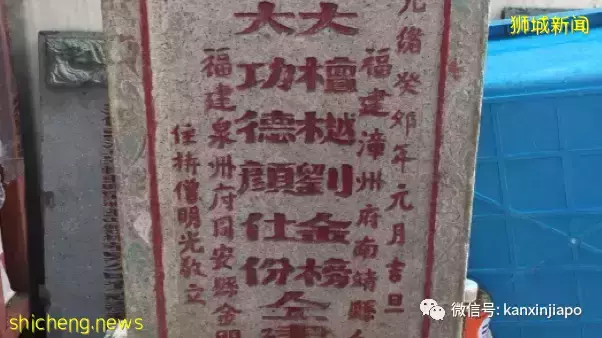 狮城新闻
光緒癸卯年元月吉旦
福建漳州府南靖縣
大檀樾劉金榜
大功德顏仕份
仝建
福建泉州府同安縣金門
住持僧明光敬立
微信号: kanxinjiapo
shicheng.news